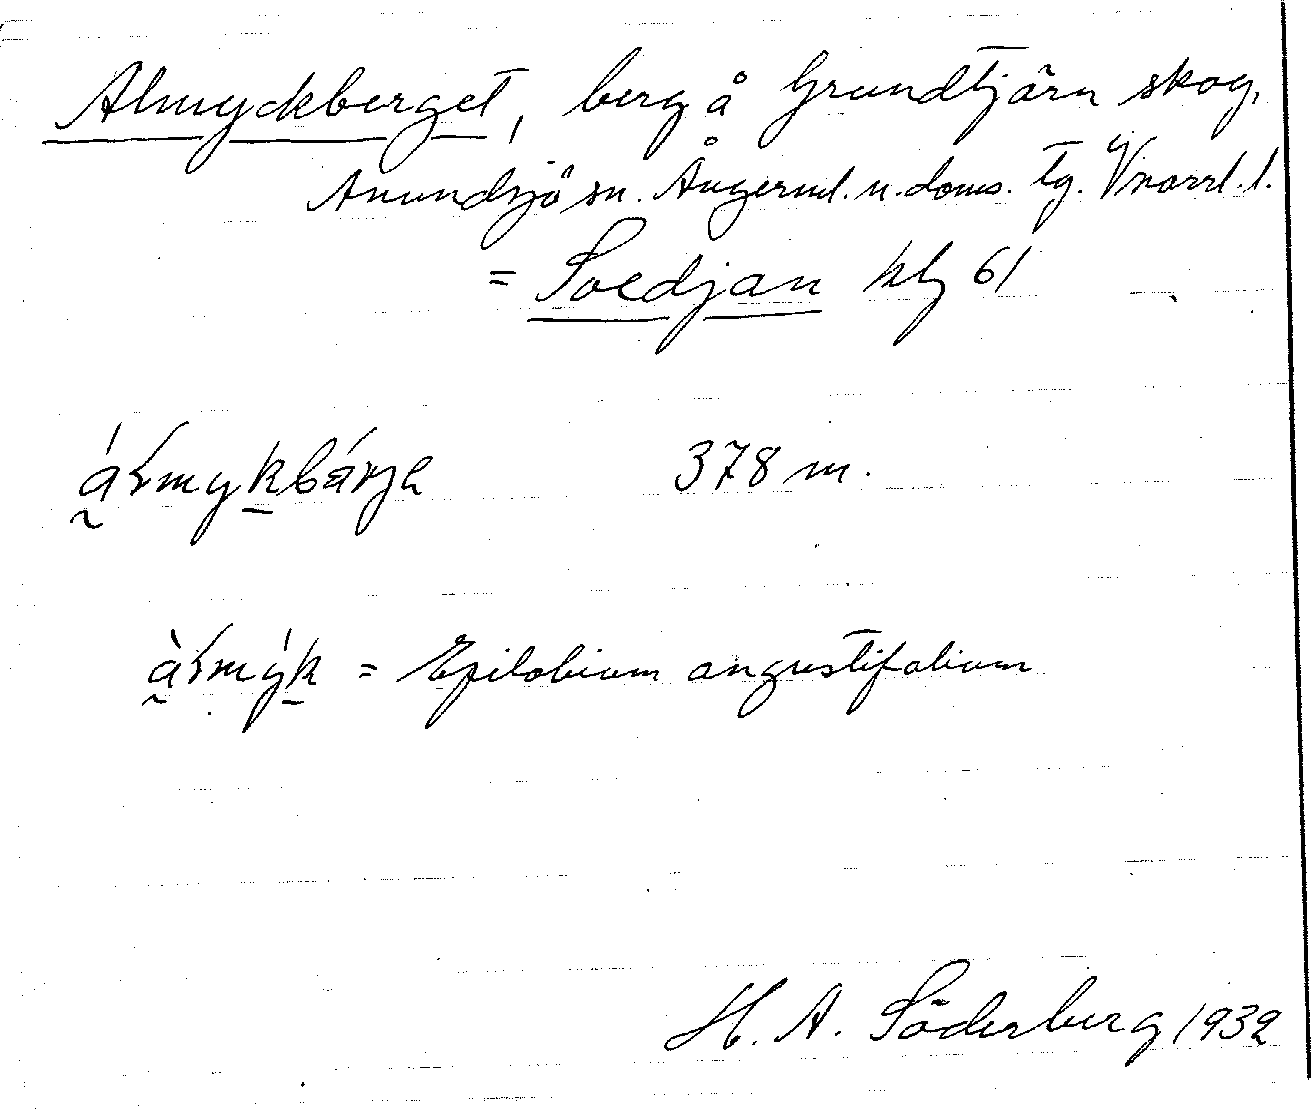 Almyckberget, berg å Grundtjärn skog,
Anundsjö sn. Ångerml. n. doms. tg. Vnorrl. l.
= Svedjan kbl 61
378 m.
= Epilobium angustifolium
H. A. Söderberg 1932